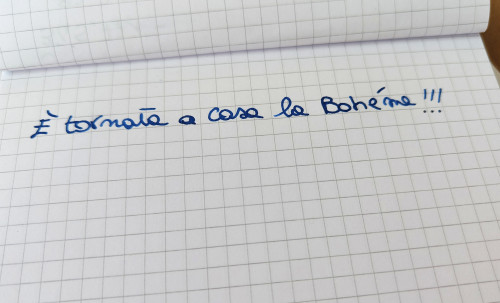 È tornata a casa la Bohéme!!!